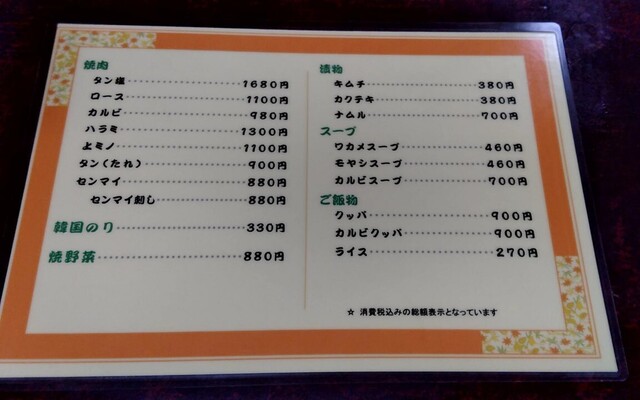 焼肉
タン塩 1680円
ロース 1100円
カルビ 980円
ハラミ 1300円
上ミノ 1100円
タン(たれ) 900円
センマイ 880円
センマイ刺し 880円
韓国のり 330円
焼野菜 880円
漬物
キムチ 380円
カクテキ 380円
ナムル 700円
スープ
ワカメスープ 460円
モヤシスープ 460円
カルビスープ 700円
ご飯物
クッパ 900円
カルビクッパ 900円
ライス 270円
☆ 消費税込みの総額表示となっています